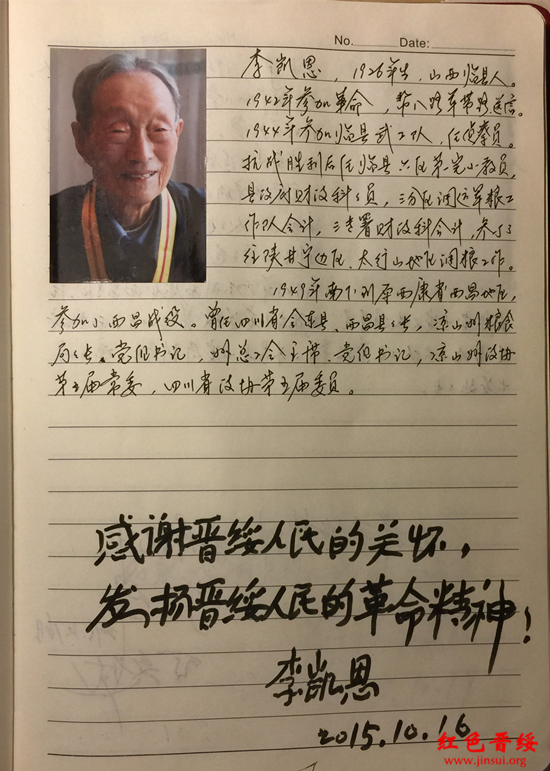 No. Date:
李凯恩，1926年生，山西临县人。
1942年参加革命，帮八路军带路送信。
1944年参加临县武工队，任侦察员。
抗战胜利后任临县六区第完小教员，
县政府财政科科员，三分区调运军粮工
作队会计，三专署财政科会计，参与了
往陕甘宁边区、太行山地区调粮工作。
1949年南下到原西康省西昌地区，
参加了西昌战役。曾任四川省会东县、西昌县县长，凉山州粮食
局局长、党组书记，州总工会主席、党组书记，凉山州政协
第五届常委，四川省政协第五届委员。
感谢晋绥人民的关怀，
发扬晋绥人民的革命精神！
李凯恩
2015.10.16
红色晋绥
www.jinsui.org